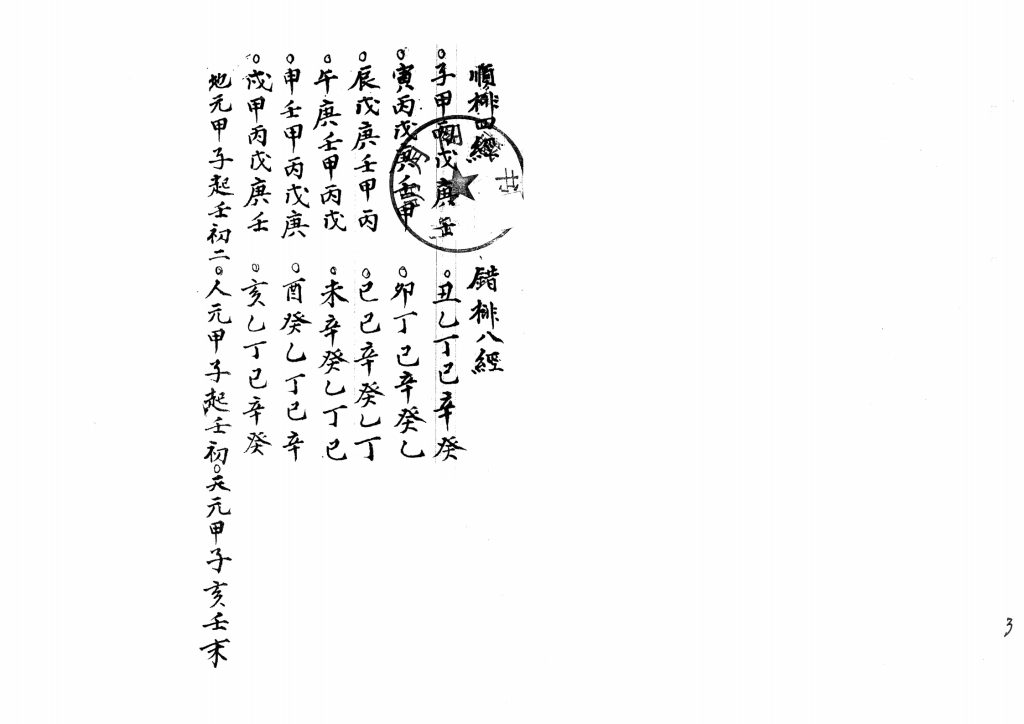 順排四經 錯排八經
○子甲丙戊庚壬 ○丑乙丁己辛癸
○寅丙戊庚壬甲 ○卯丁己辛癸乙
○辰戊庚壬甲丙 ○巳己辛癸乙丁
○午庚壬甲丙戊 ○未辛癸乙丁己
○申壬甲丙戊庚 ○酉癸乙丁己辛
○戌甲丙戊庚壬 ○亥乙丁己辛癸
地元甲子起壬初二○人元甲子起壬初○天元甲子亥壬末
书
3